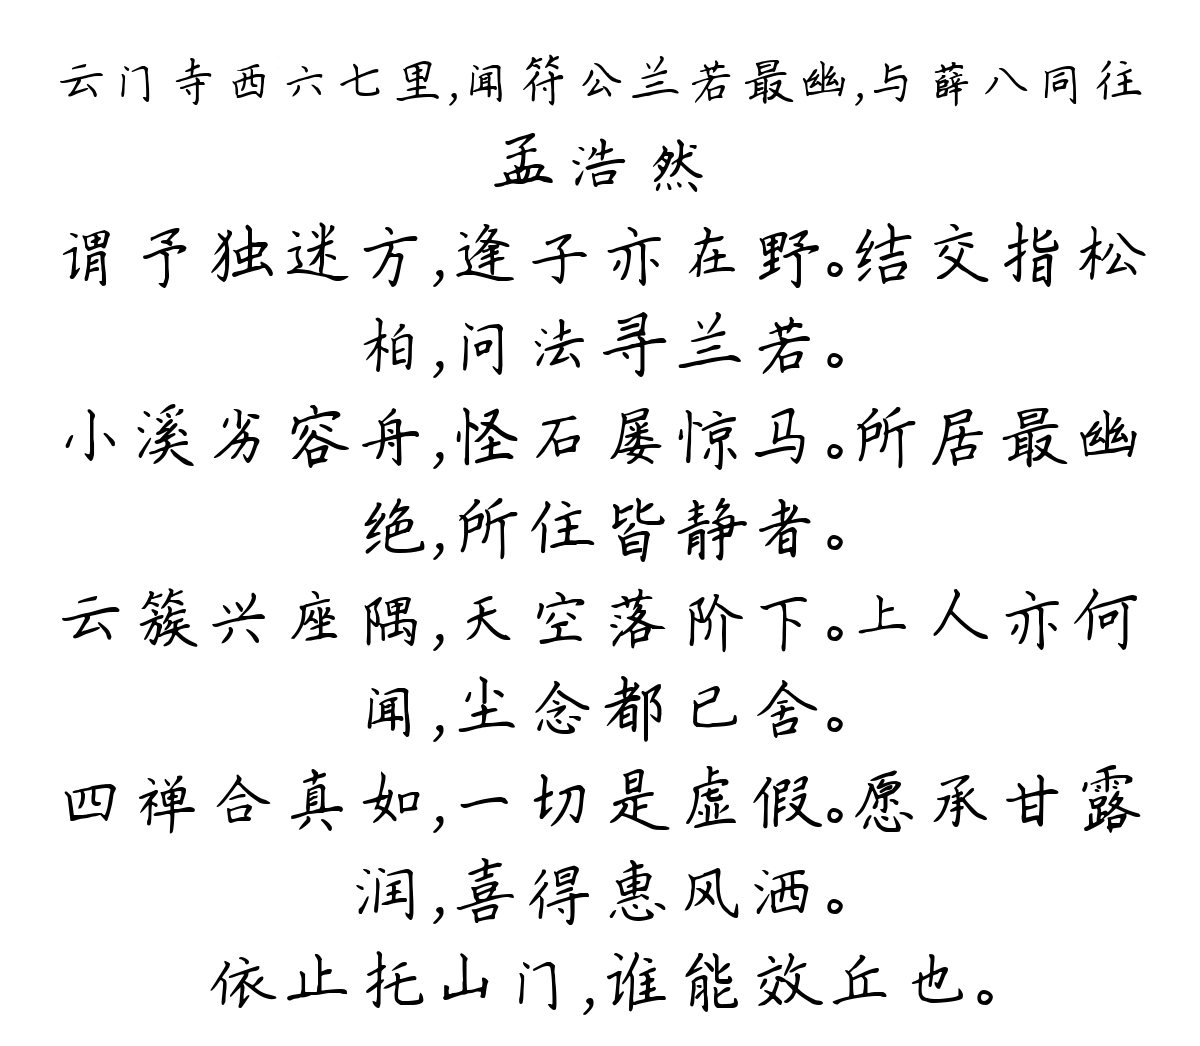 云门寺西六七里,闻符公兰若最幽,与薛八同往
孟浩然
谓予独迷方,逢子亦在野。结交指松
柏,问法寻兰若。
小溪劣容舟,怪石屡惊马。所居最幽
绝,所住皆静者。
云簇兴座隅,天空落阶下。上人亦何
闻,尘念都已舍。
四禅合真如,一切是虚假。愿承甘露
润,喜得惠风洒。
依止托山门,谁能效丘也。